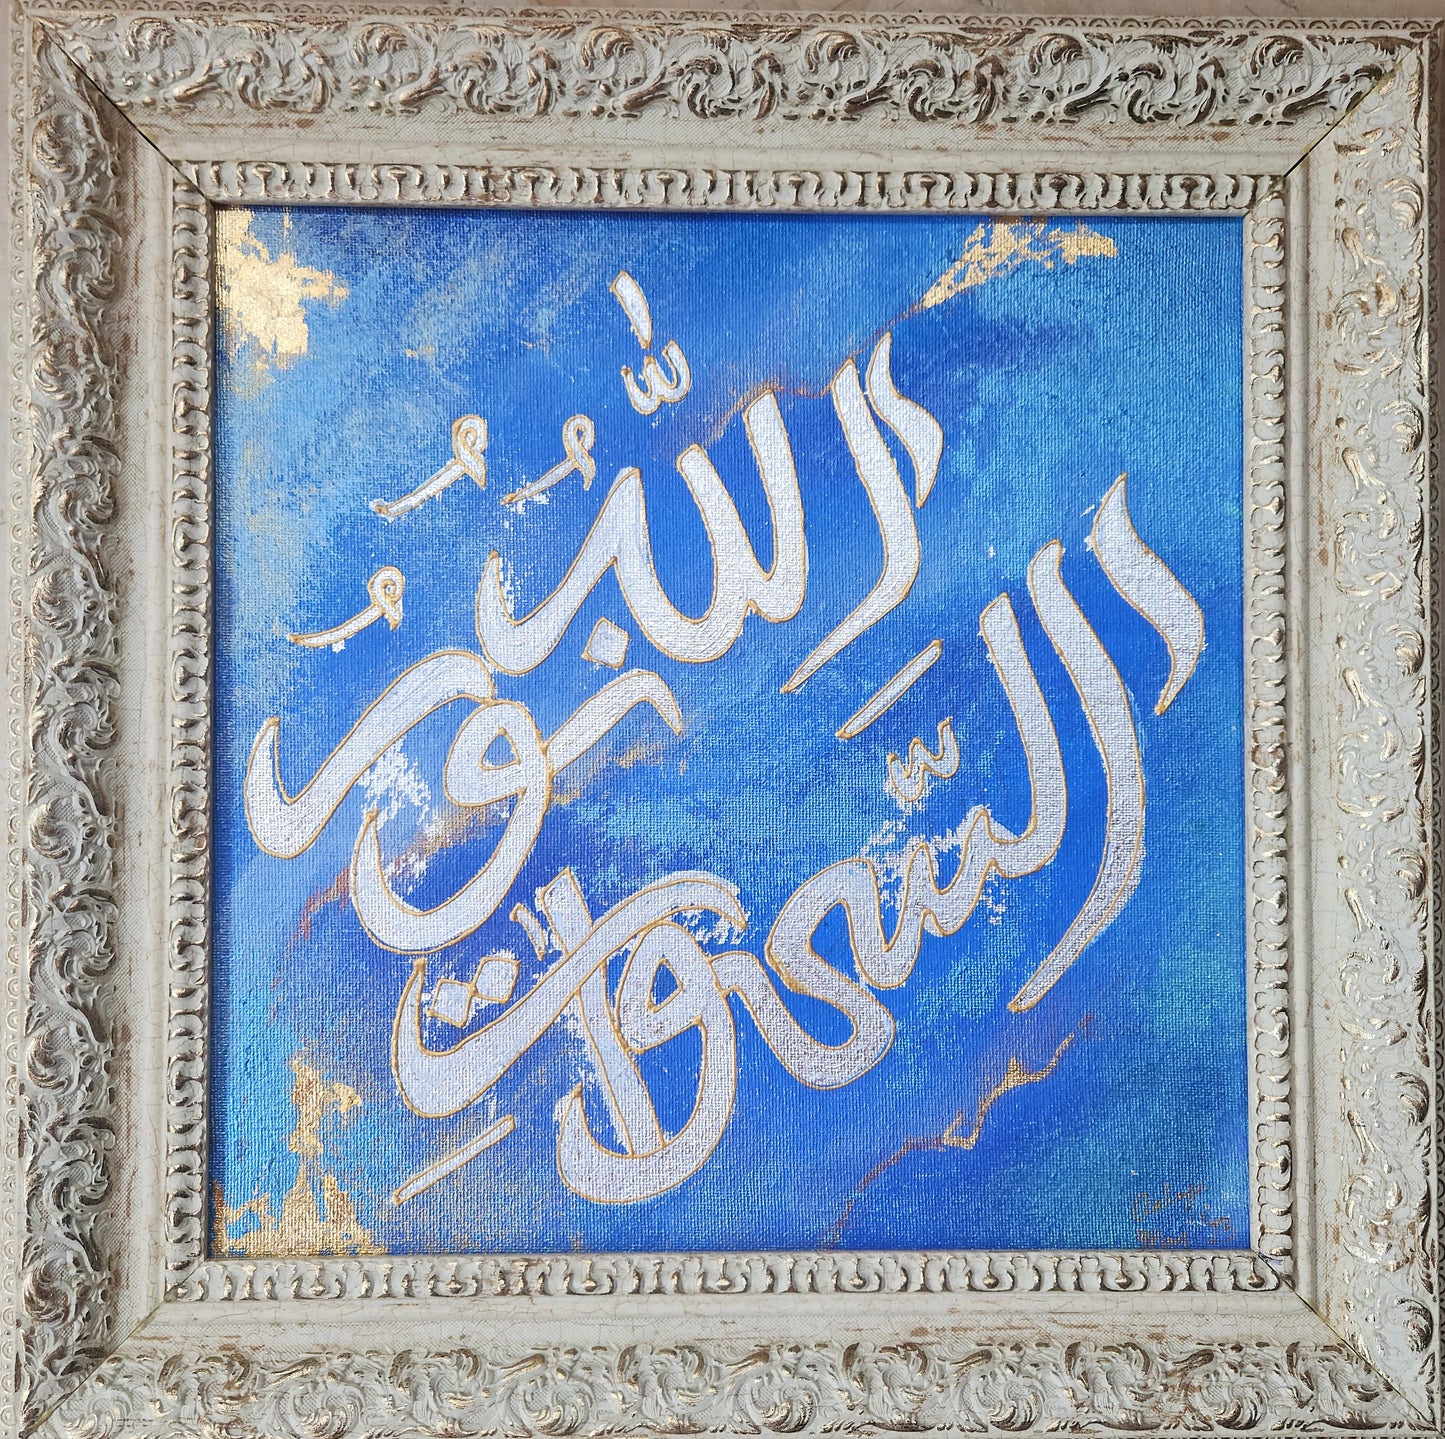 اللّٰهُ نُورُ
السَّمٰوٰتِ